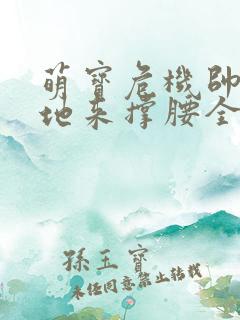 萌寶危機帥
地來撐腰全
孫玉寶
未經同意禁止轉載